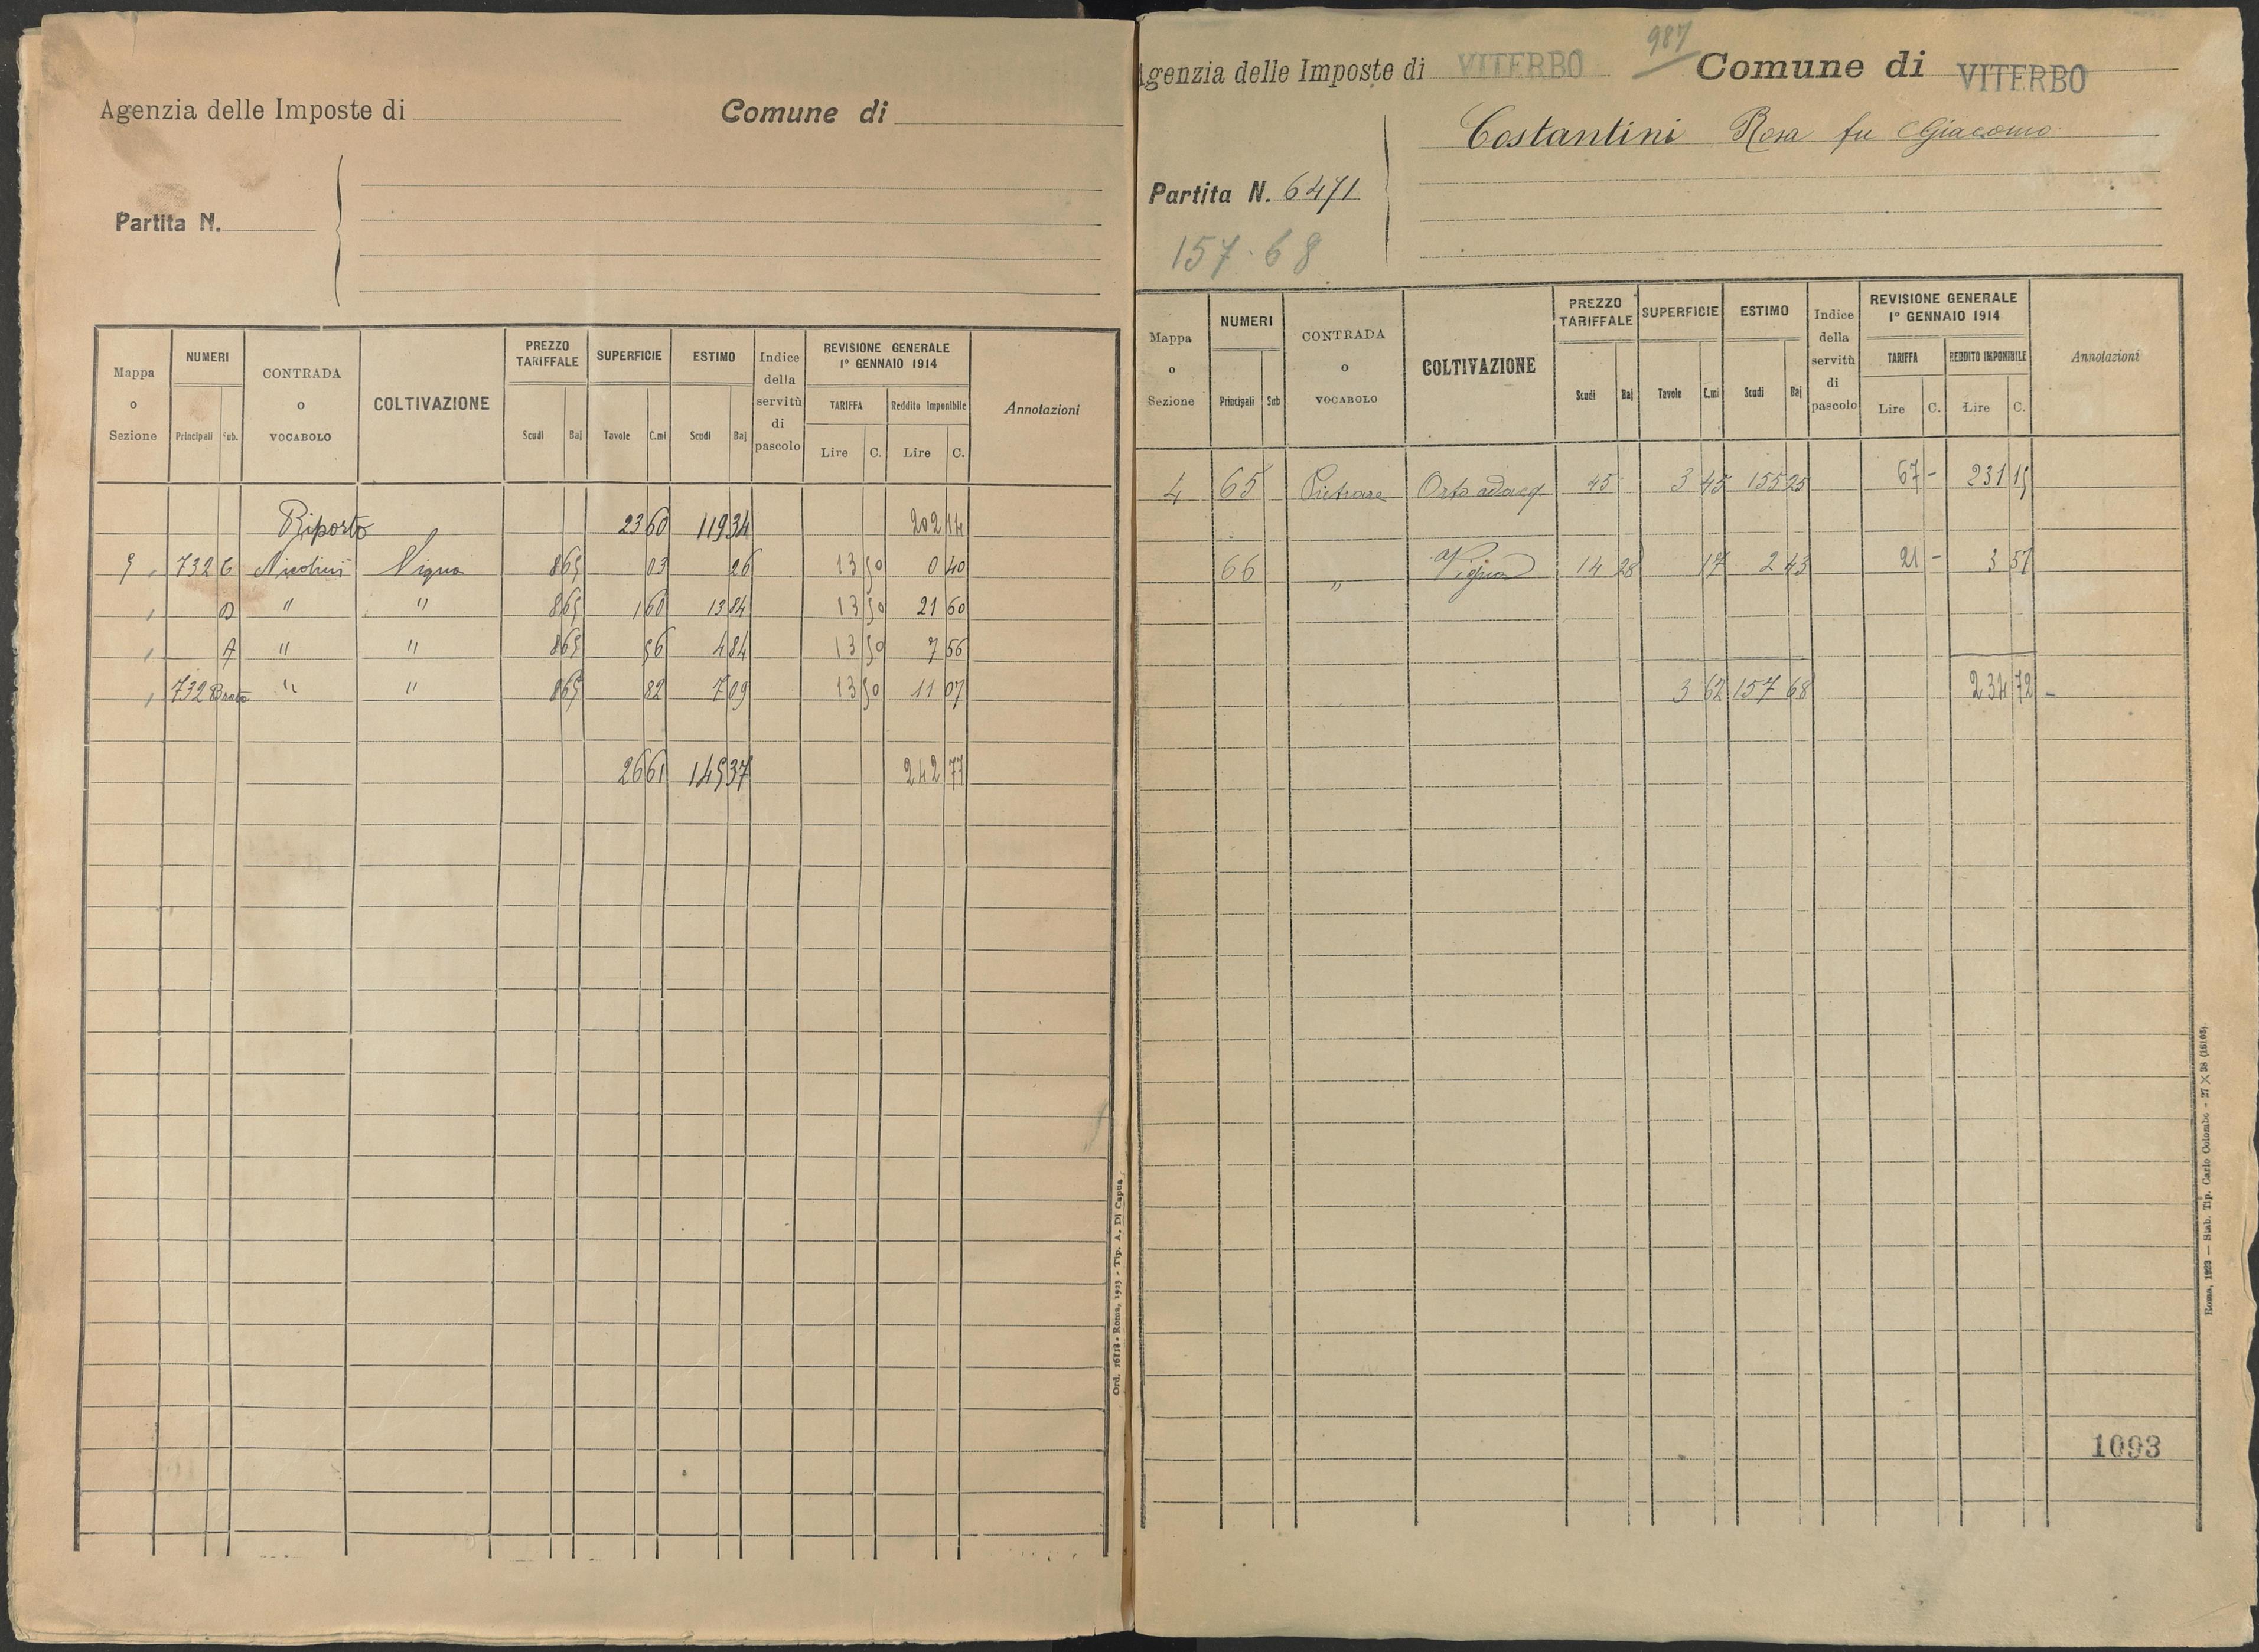 Agenzia delle Imposte di
Comune di
Partita N.
Mappa o Sezione
NUMERI
Principali
Sub.
CONTRADA o VOCABOLO
COLTIVAZIONE
PREZZO TARIFFALE
Scudi
Baj
SUPERFICIE
Tavole
C.mi
ESTIMO
Scudi
Baj
Indice della servitù di pascolo
REVISIONE GENERALE
1º GENNAIO 1914
TARIFFA
Lire
C.
Reddito Imponibile
Lire
C.
Annotazioni
Riporto 23 60 119 34 202 14
732 C Vigna 8 65 03 26 13 50 0 40
" D " " 8 65 1 60 13 84 13 50 21 60
" A " " 8 65 56 4 84 13 50 7 56
" 732 B " " 8 65 82 7 09 13 50 11 07
26 61 145 37 242 77
Ord. 16118 - Roma, 1923 - Tip. A. Di Capua
987
Agenzia delle Imposte di VITERBO
Comune di VITERBO
Costantini Rosa fu Giacomo
Partita N. 6471
157.68
Mappa o Sezione
NUMERI
Principali
Sub
CONTRADA o VOCABOLO
COLTIVAZIONE
PREZZO TARIFFALE
Scudi
Baj
SUPERFICIE
Tavole
C.mi
ESTIMO
Scudi
Baj
Indice della servitù di pascolo
REVISIONE GENERALE
1º GENNAIO 1914
TARIFFA
Lire
C.
REDDITO IMPONIBILE
Lire
C.
Annotazioni
4 65 Pietrare Orto adacq 45 3 45 155 25 67 - 231 15
66 " Vigna 14 28 17 2 43 21 - 3 57
3 62 157 68 234 72 -
Roma, 1923 — Stab. Tip. Carlo Colombo - 27 X 38 (16103).
1093